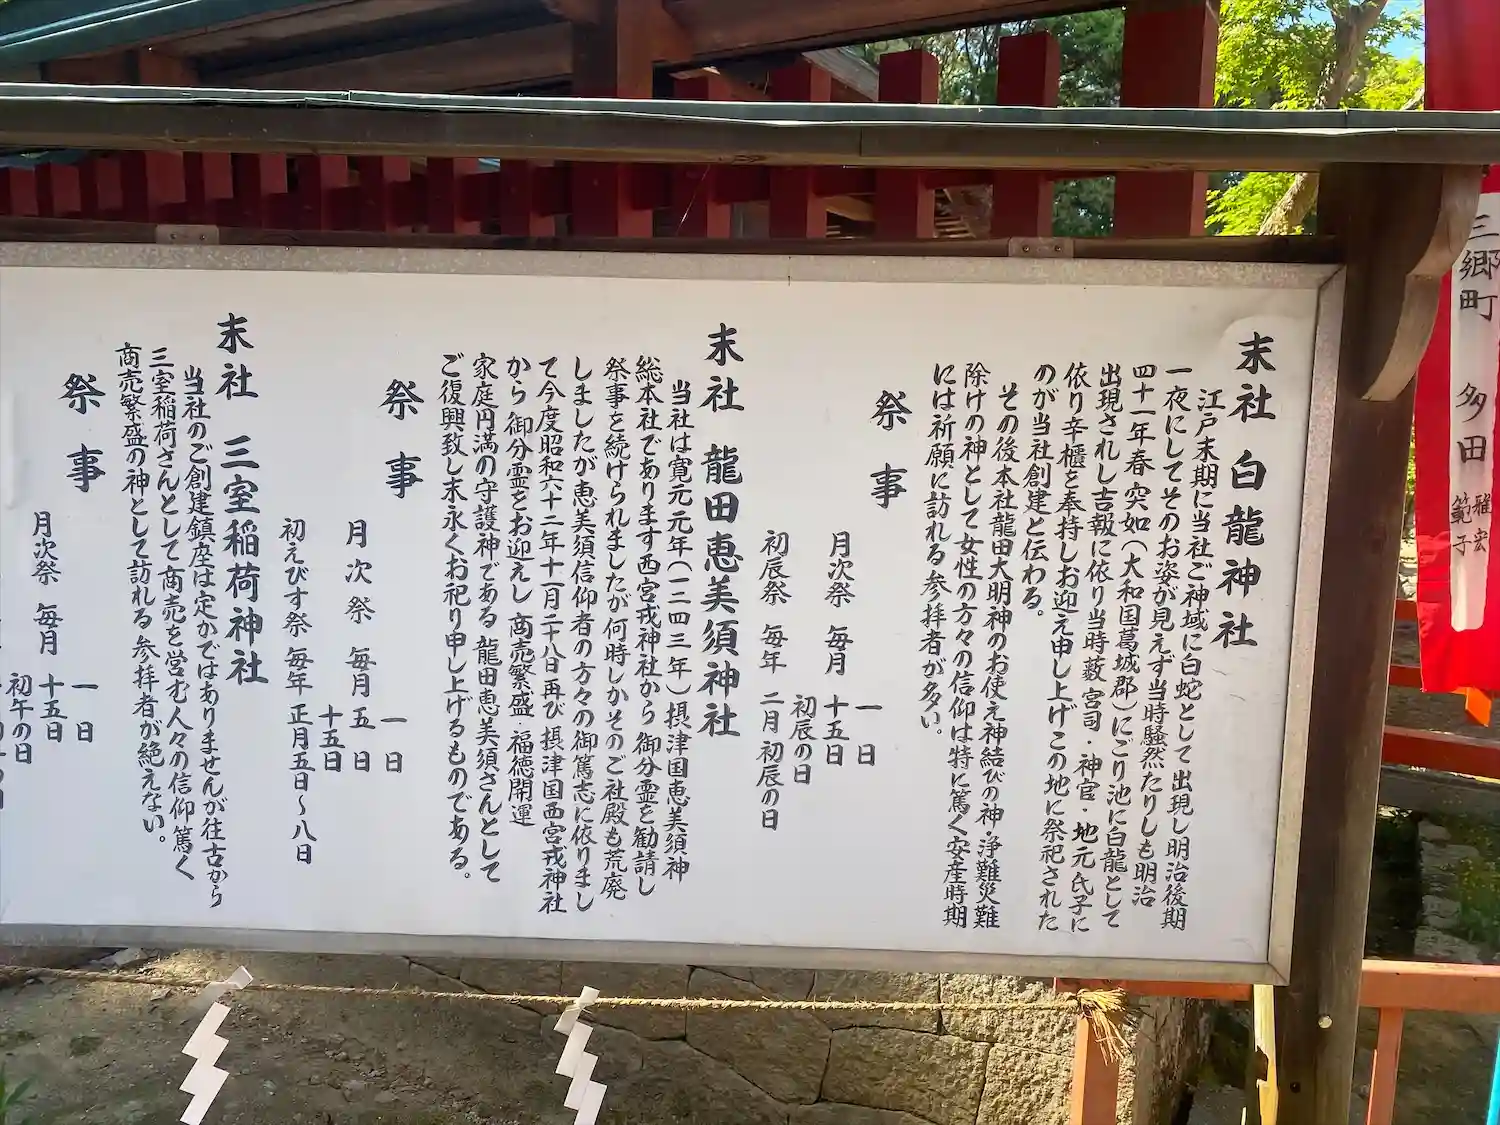 末社 白龍神社
江戸末期に当社ご神域に白蛇として出現し明治後期
一夜にしてそのお姿が見えず当時騒然たりしも明治
四十一年春 突如(大和国葛城郡)にごり池に白龍として
出現されし吉報に依り当時藪宮司・神官・地元氏子に
依り辛櫃を奉持しお迎え申し上げこの地に祭祀された
のが当社創建と伝わる。
その後本社龍田大明神のお使え神結びの神・浄難災難
除けの神として女性の方々の信仰は特に篤く安産時期
には祈願に訪れる参拝者が多い。
祭事
月次祭 毎月 一日
十五日
初辰の日
初辰祭 毎年 二月初辰の日
末社 龍田恵美須神社
当社は寛元元年(一二四三年)摂津国恵美須神
総本社であります西宮戎神社から御分霊を勧請し
祭事を続けられましたが何時しかそのご社殿も荒廃
しましたが恵美須信仰者の方々の御篤志に依りまし
て今度昭和六十二年十一月二十八日再び摂津国西宮戎神社
から御分霊をお迎えし商売繁盛・福徳開運
家庭円満の守護神である龍田恵美須さんとして
ご復興致し末永くお祀り申し上げるものである。
祭事
月次祭 毎月 一日
五日
十五日
初えびす祭 毎年 正月五日〜八日
末社 三室稲荷神社
当社のご創建鎮座は定かではありませんが往古から
三室稲荷さんとして商売を営む人々の信仰篤く
商売繁盛の神として訪れる参拝者が絶えない。
祭事
月次祭 毎月 一日
十五日
初午の日
三郷町 多田 雅宏
範子